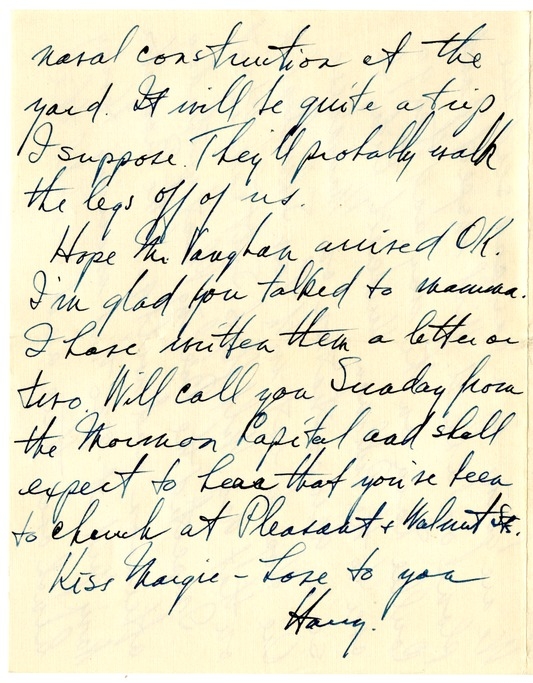 naval construction at the
yard. It will be quite a trip
I suppose. They'll probably walk
the legs off of us.
Hope Mr. Vaughan arrived OK.
I'm glad you talked to mamma.
I have written them a letter or
two. Will call you Sunday from
the Mormon Capital and shall
expect to hear that you've been
to church at Pleasant & Walnut Sts.
Kiss Margie - Love to you
Harry.